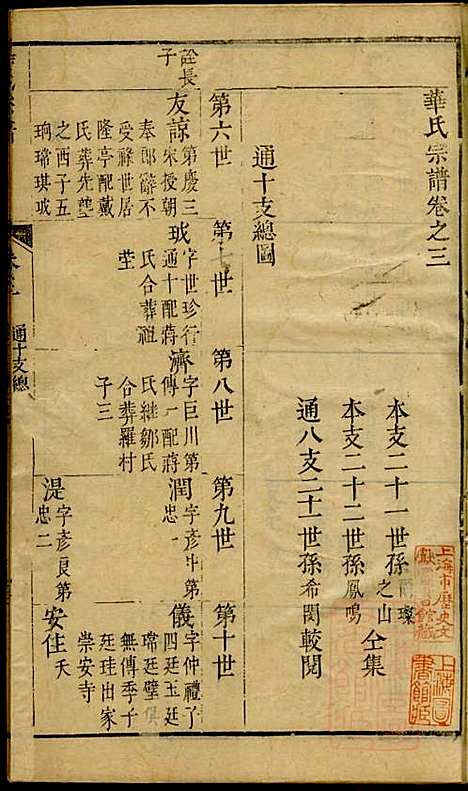 華氏宗譜卷之三
本支二十一世孫
璨
之山
本支二十二世孫鳳鳴
仝集
通八支二十一世孫希閔較閱
通十支總圖
第六世
第七世
第八世
第九世
第十世
詮長子
友諒
第慶三
宋授朝
奉郎辭不
受祿世居
隆亭配戴
氏葬先塋
之西子五
珦瑺琪珬
珬
字世珍行
通十配蔣
氏合葬祖
塋
濟
字巨川第
傳一配蔣
氏繼鄒氏
合葬羅村
子三
潤
字彥中第
忠一
儀
字仲禮子
四廷玉廷
瑺廷璧俱
無傳季子
廷珪出家
崇安寺
湜
字彥良第
忠二
安住
夭
通十支總
上海市歷史文
獻圖書館藏
上海圖
書館藏